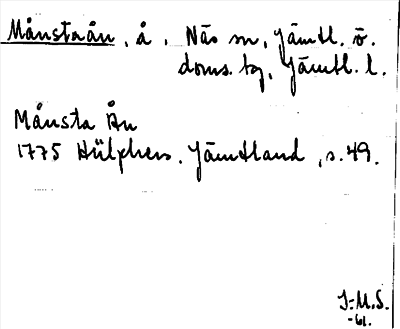 Månstaån, å, Näs sn, Jämtl. ö.
doms. tg, Jämtl. l.
Månsta Ån
1775 Hülphers. Jämtland, s. 49.
I-M.S.
-61.